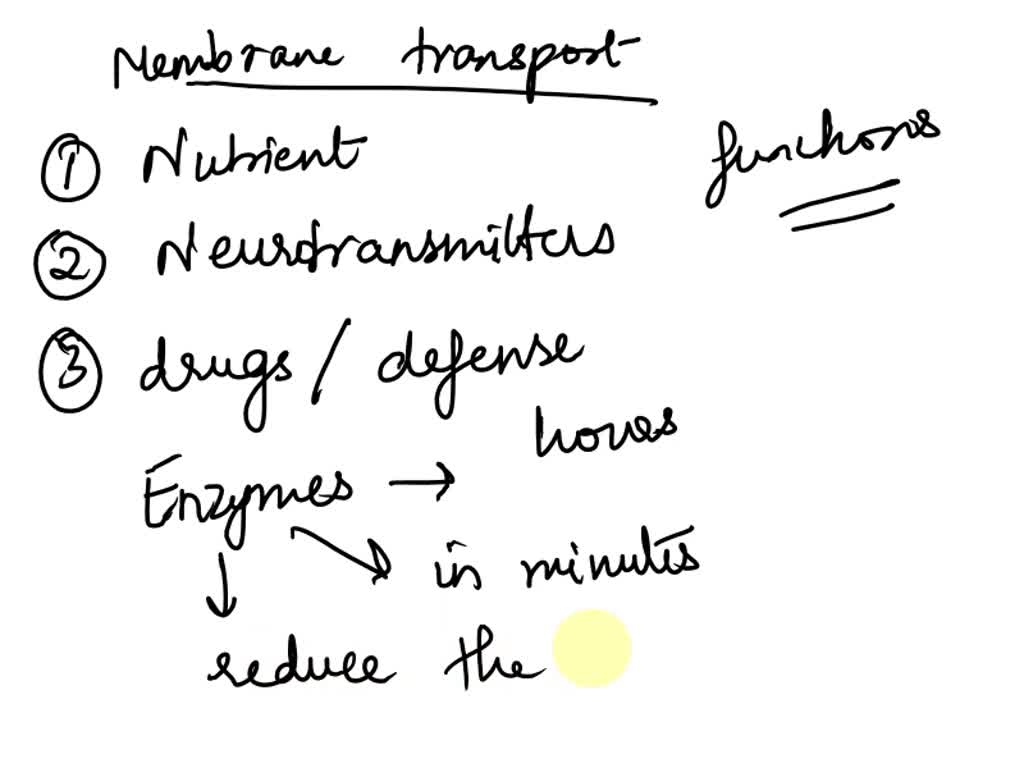 Membrane transport
functions
① Nutrient
② Neurotransmitters
③ drugs / defense
Enzymes → hours
in minutes
reduce the